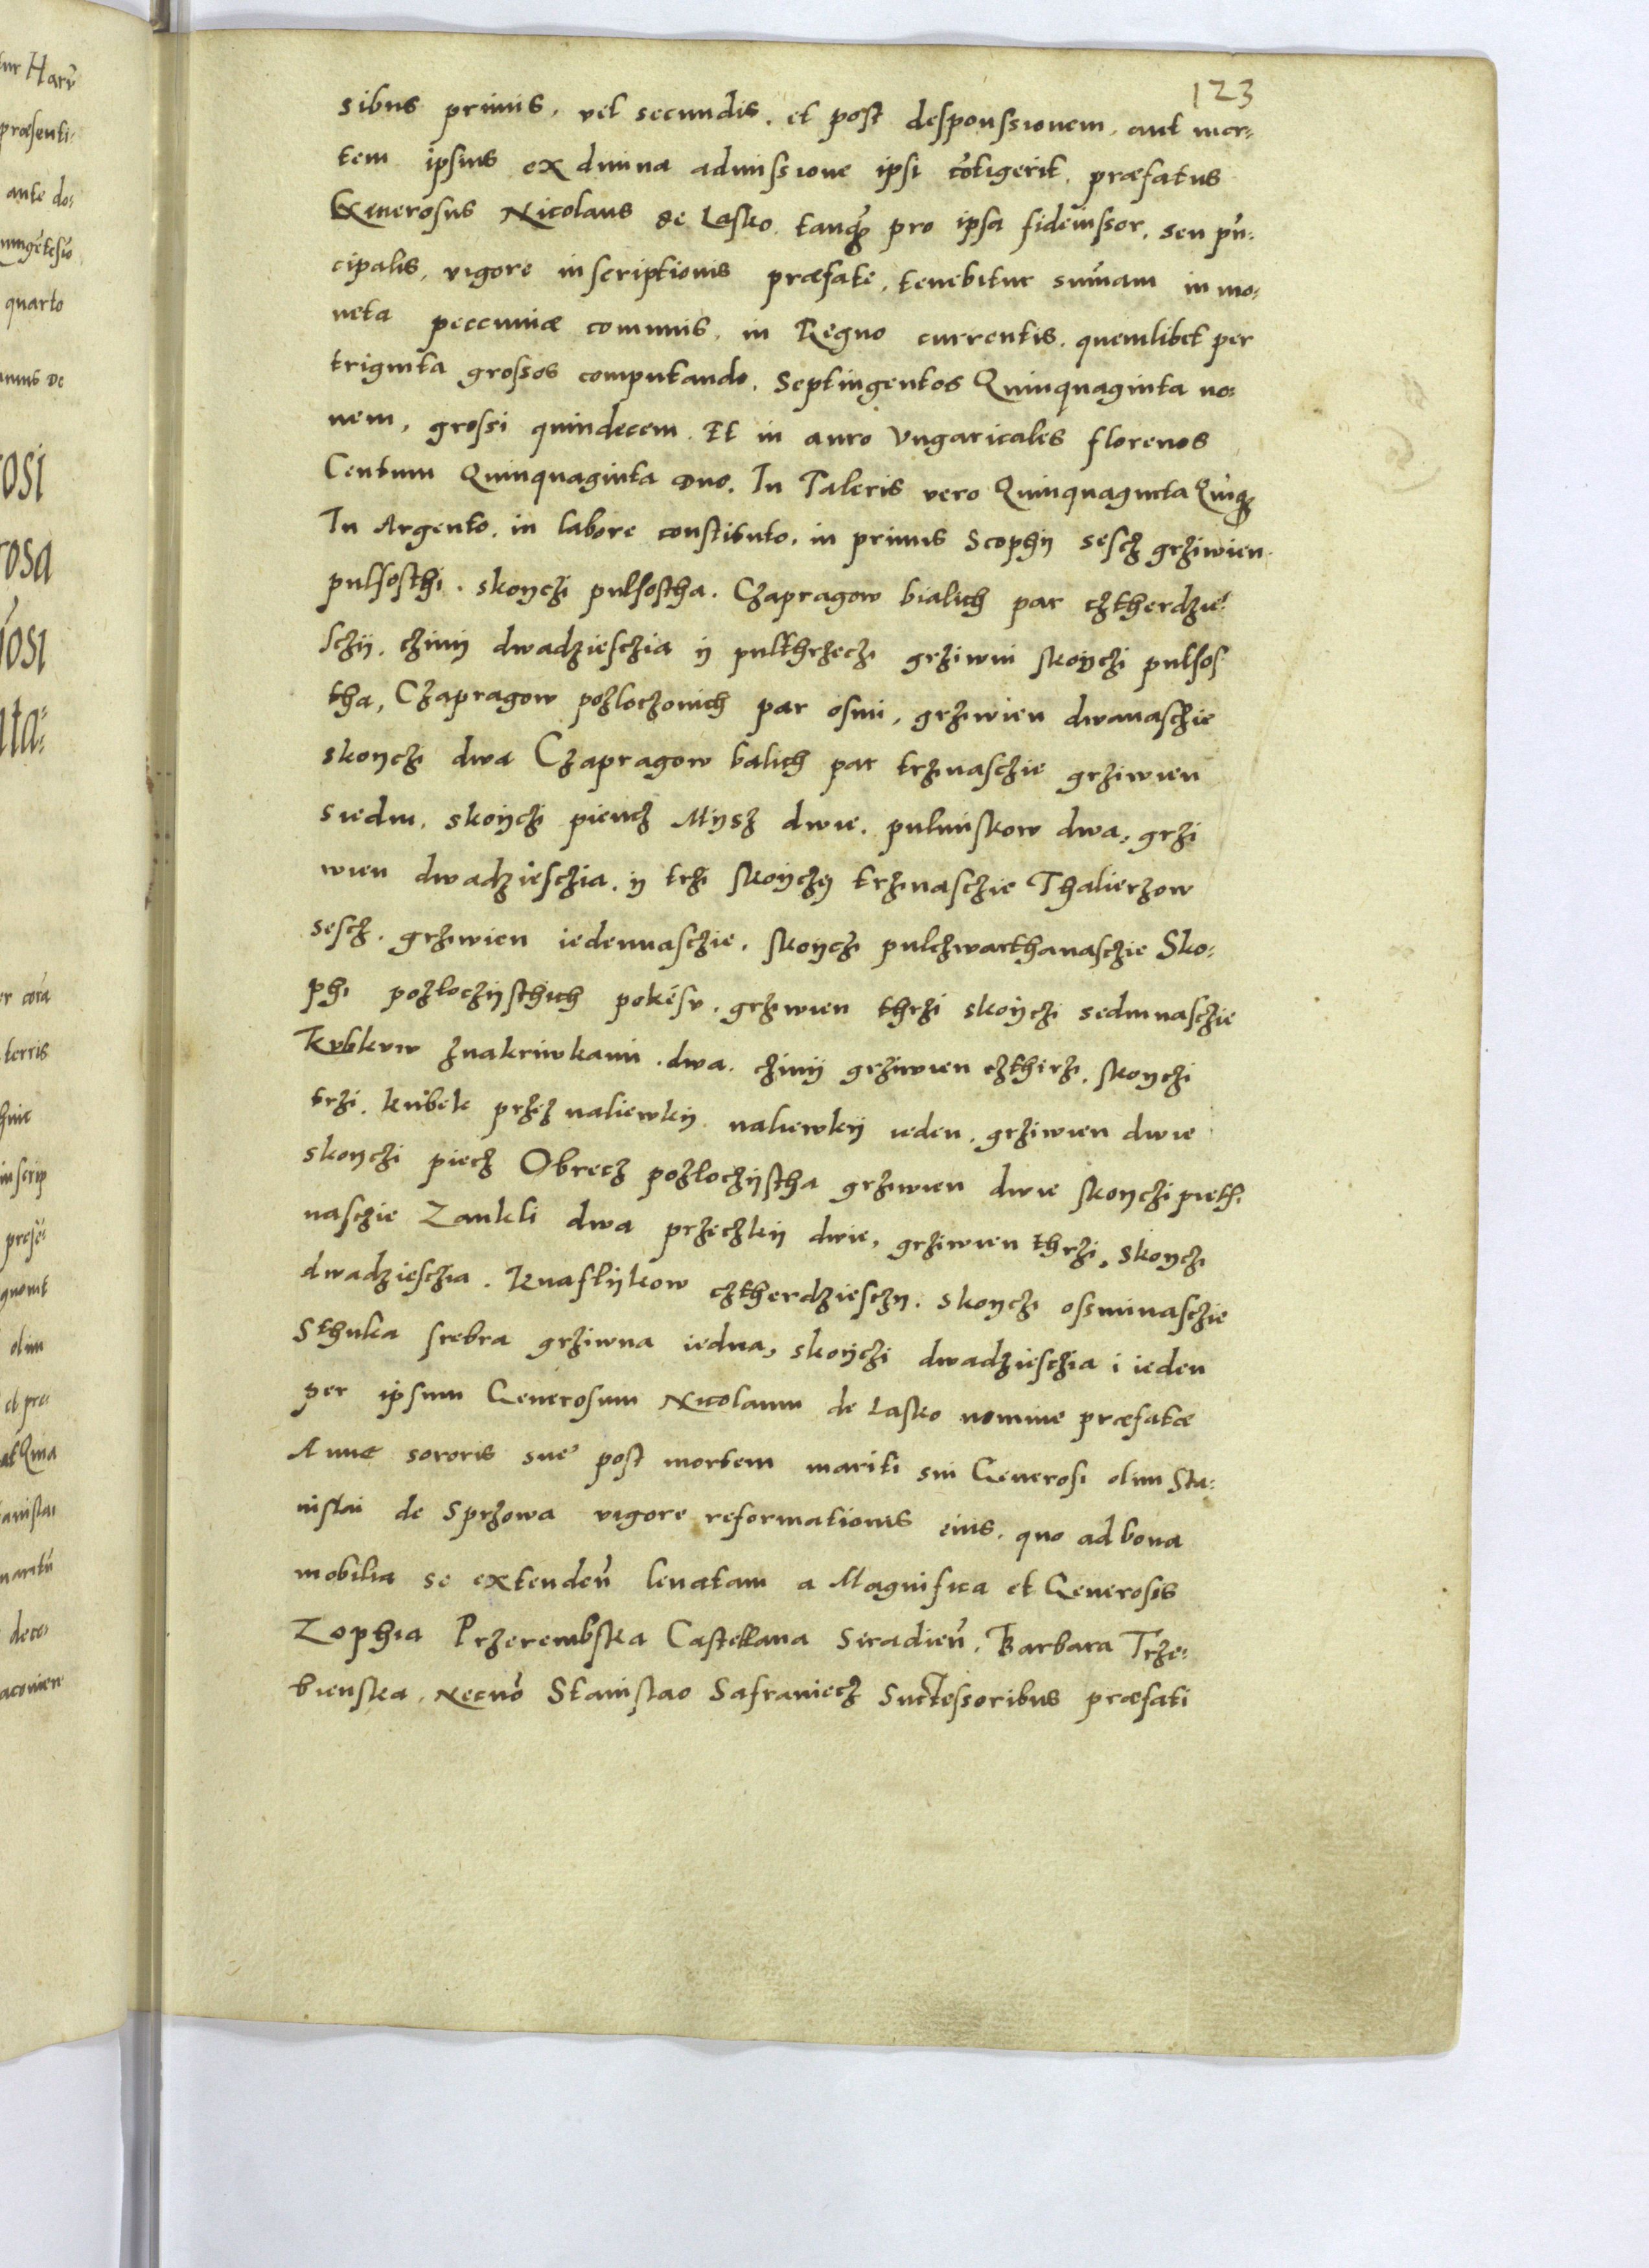 123
sibus primis, vel secundis, et post desponssionem, aut mor-
tem ipsius ex diuina admissione ipsi cōtigerit, præfatus
Generosus Nicolaus de Lasko, tanq̃ pro ipsa fideiussor, seu prĩ-
cipalis, vigore inscriptionis præfate, tenebitur sum̃am in mo-
neta peccuniæ communis, in Regno currentis, quemlibet per
triginta grossos computando, Septingentos Quinquaginta no-
nem, grossi quindecem. Et in auro Vngaricales florenos
Centum Quinquaginta Duo. In Taleris vero Quinquagincta Quĩq̃
In Argento, in labore constituto, in primis Scophÿ sescz grziwien
pulsosthi, skoycżi pulsostha. Czapragow bialich par cztherdzie-
sczÿ, cziniÿ dwadzieschia ÿ pulthrzeczi grziwni skoÿczi pulsos
tha, Czapragow pozloczonich par osmi, grziwien dwanaschie
skoyczi dwa Czapragow balich par trzinaschie grziwien
siedm, skoÿczi piencz Mÿsz dwie, pulmiskow dwa, grzi
wien dwadzieschia, ÿ trzi skoÿczÿ trzinaschie Thalierzow
sescz, grziwien iedennaschie, skoÿczi pulczwarthanaschie Sko-
phi pozłoczÿsthich pokẽsv, grziwien thrzi skoÿczi sedmnaschie
Kvbkvw znakriwkami dwa, cziniÿ grziwien czthirzi, skoyczi
trzi, kubek przez naliewkÿ naliewkÿ ieden, grziwien dwie
skoyczi piecz Obrecz pozłoczÿstha grziwien dwie skoyczi pieth-
naschie Zankli dwa przeczkÿ dwie, grziwien thrzi, skoyczi
dwadzieschia. Knaflÿkow cztherdziesczÿ, skoyczi ossminaschie
Sthuka srebra grziwna iedna, skoÿczi dwadzieschia i ieden
per ipsum Generosum Nicolaum de Lasko nomine præfatæ
Annæ sororis suæ post mortem mariti sui Generosi olim Sta-
nislai de Sprzowa vigore reformationis eius, quo ad bona
mobilia se extendeñ leuatam a Magnifica et Generosis
Zophia Przerembska Castellana Siradieñ, Barbara Trze-
bienska, Necnõ Stanislao Safraniecz Suctessoribus præfati